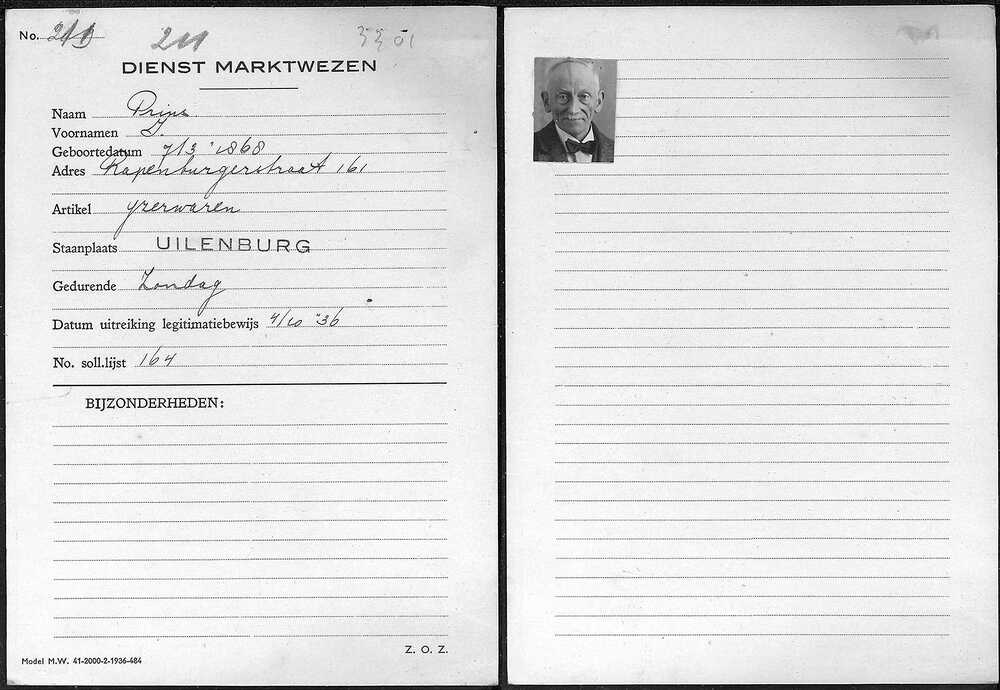 No. 210 211 3301
DIENST MARKTWEZEN
Naam Prins
Voornamen J.
Geboortedatum 7/3 '1868
Adres Rapenburgerstraat 161
Artikel yzerwaren
Staanplaats UILENBURG
Gedurende Zondag
Datum uitreiking legitimatiebewijs 4/10 '36
No. soll.lijst 164
BIJZONDERHEDEN:
Z. O. Z.
Model M.W. 41-2000-2-1936-484